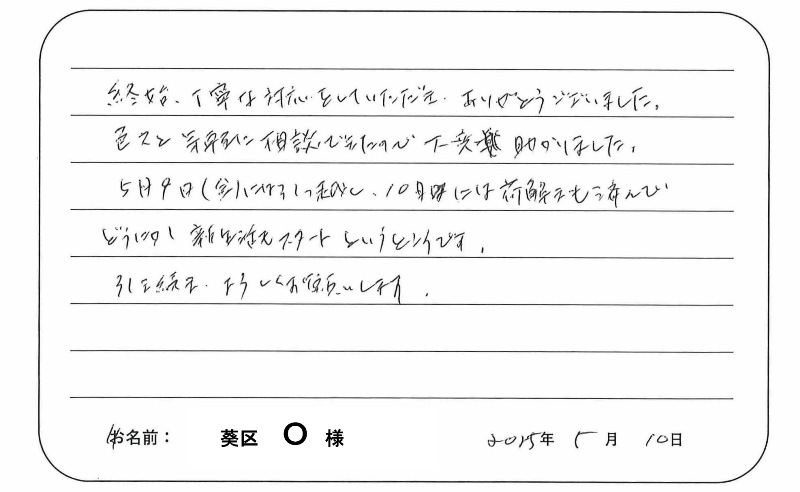 終始、丁寧な対応をしていただき、ありがとうございました。
色々と気軽に相談できたので大変助かりました。
5月9日(金)には引っ越し、10日には荷解きも済んで
どうにか新生活もスタートというところです。
引き続き、よろしくお願いします。
お名前： 葵区 〇 様 2015年 5月 10日